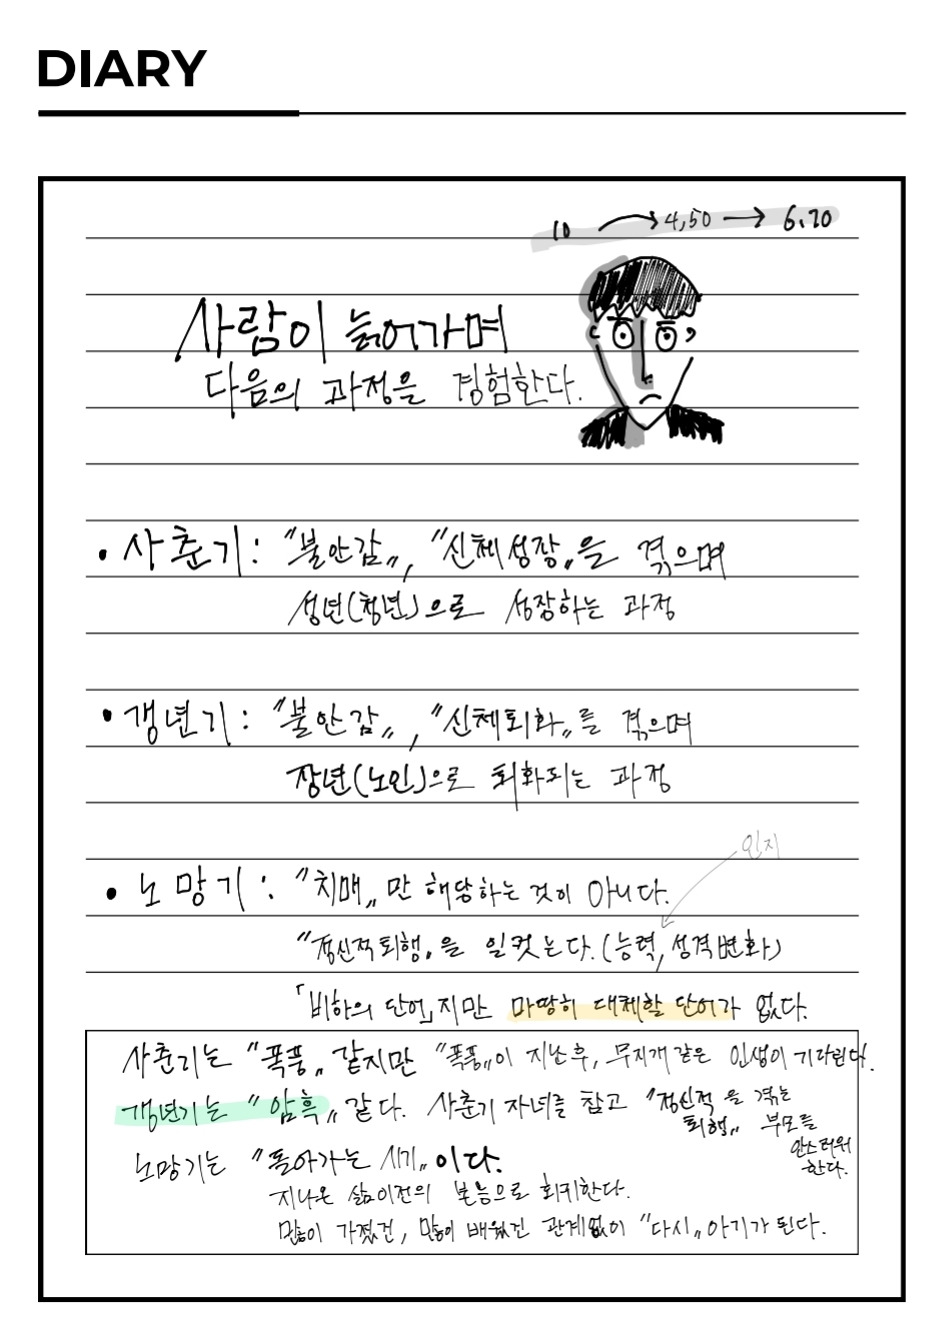 DIARY
10 → 4,50 → 6.70
사람이 늙어가며
다음의 과정을 경험한다.
• 사춘기: "불안감", "신체성장"을 겪으며
성년(청년)으로 성장하는 과정
• 갱년기: "불안감", "신체퇴화"를 겪으며
장년(노인)으로 퇴화되는 과정
인지
• 노망기: "치매"만 해당하는 것이 아니다.
"정신적퇴행"을 일컷는다. (능력, 성격변화)
「비하의 단어」지만 마땅히 대체할 단어가 없다.
사춘기는 "폭풍" 같지만 "폭풍"이 지난후, 무지개같은 인생이 기다린다.
갱년기는 "암흑"같다. 사춘기 자녀를 참고 "정신적 퇴행"을 겪는 부모를 안스러워 한다.
노망기는 "돌아가는 시기"이다.
지나온 삶이전의 본능으로 회귀한다.
많이 가졌건, 많이 배웠건 관계없이 "다시"아기가 된다.